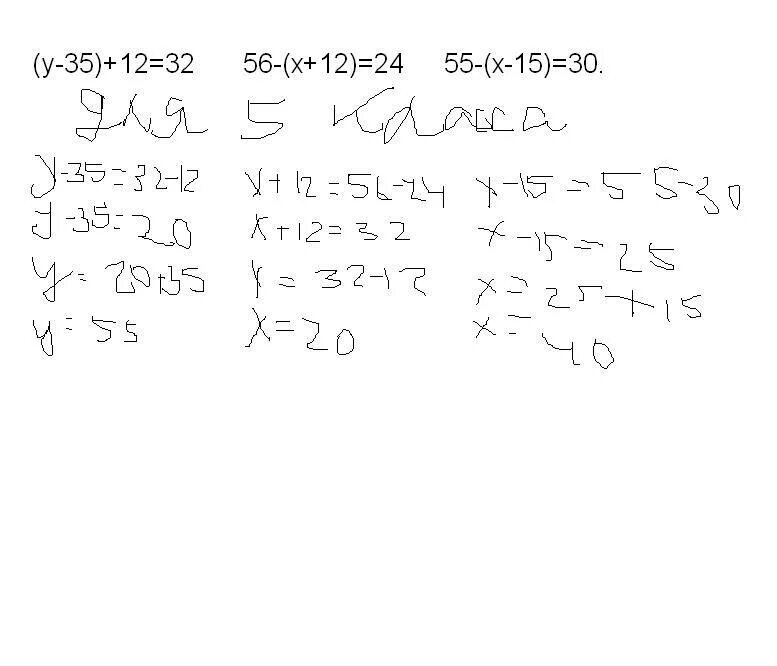 (y-35)+12=32 56-(x+12)=24 55-(x-15)=30.
Для 5 класса
y-35=32-12 x+12=56-24 x-15=55-30
y-35=20 x+12=32 x-15=25
y=20+35 x=32-12 x=25+15
y=55 x=20 x=40